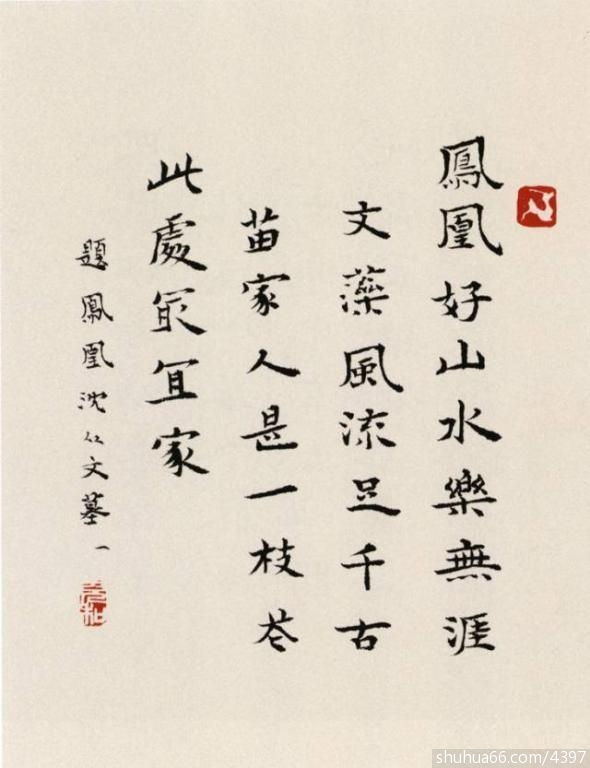 鳳凰好山水樂無涯
文藻風流足千古
苗家人是一枝花
此處冣冝家
題鳳凰沈从文墓一
shuhua66.com/4397